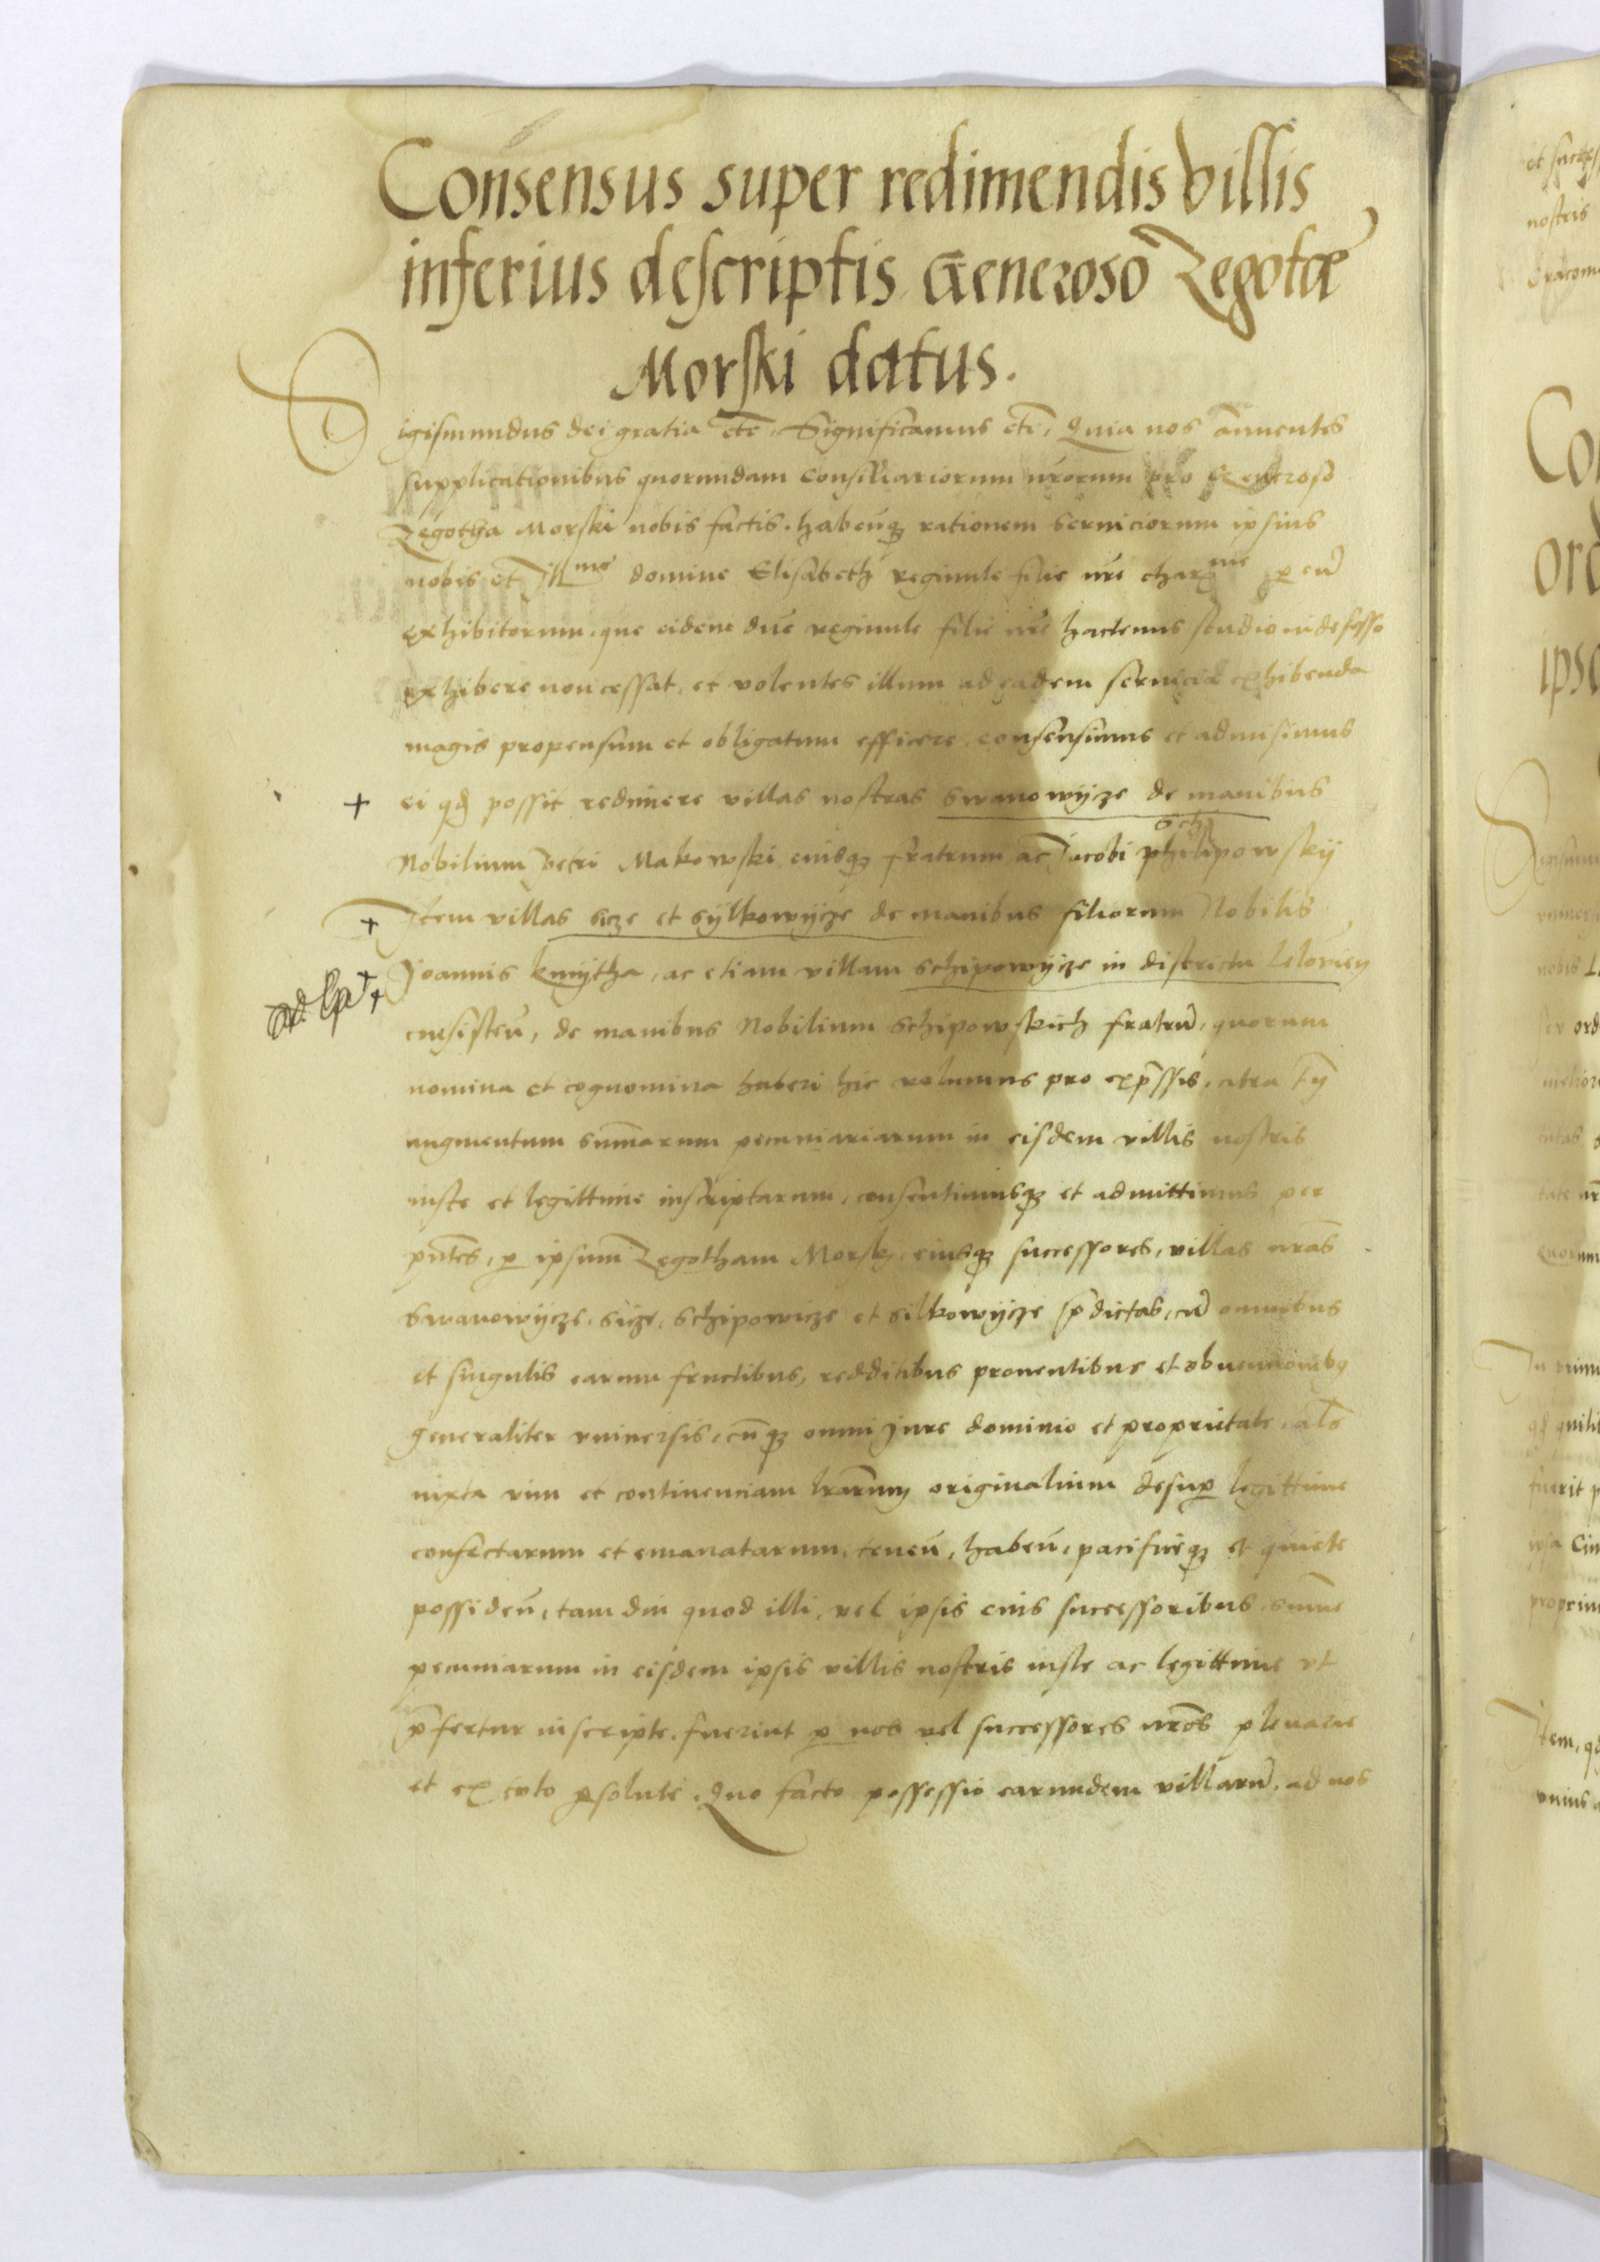 Consensus super redimendis villis
inferius descriptis Generoso Zegotæ
Morski datus.
Sigismundus dei gratia etc̄. Significamus etc̄. Quia nos annuentes
supplicationibus quorundam consiliariorum nrorum pro Generoso
Zegotha Morski nobis factis. habenq₃ rationem serviciorum ipsius
nobis et Illme domine Elisabeth reginule filie nre charme p eū
exhibitorum, que eidem dūe reginule filie nre hactenus studio indefesso
exhibere non cessat, et volentes illum ad eadem servicia exhibenda
magis propensum et obligatum efficere, consensimus et admisimus
+ ei qđ possit redimere villas nostras swanowÿcze de manibus
Nobilium Petri Makowski eiusq₃ fratrum ac Jacobi philipowskÿ
+ Item villas sicze et sÿlkowÿcze de manibus filiorum Nobilis
Joannis kmÿtha, ac etiam villam schipowÿcze in districtu Lelovieñ
consisteñ, de manibus Nobilium schipowskich fratrū, quorum
nomina et cognomina haberi hic volumus pro expressis, citra tñ
augmentum summarum pecuniariarum in eisdem villis nostris
iuste et legittime inscriptarum, consentimusq₃ et admittimus per
pñtes, p ipsum Zegotham Morski eiusq₃ successores, villas nras
swanowÿcze, sicze, schipowicze et silkowÿcze p̄dictas, cū omnibus
et singulis earum fructibus, redditibus proventibus et obventionibq
generaliter vniversis, cūq₃ omni jure dominio et proprietate, als
iuxta vim et continenciam lrarum originalium desup legittime
confectarum et emanatarum, teneñ, habeñ, pacificeq₃ et quiete
possideñ, tam diu quod illi, vel ipsis eius successoribus, summe
pecuniarum in eisdem ipsis villis nostris iuste ac legittime vt
p̄fertur inscripte, fuerint p nos vel successores nros plenarie
et ex toto psolute. Quo facto possessio earundem villarū, ad nos